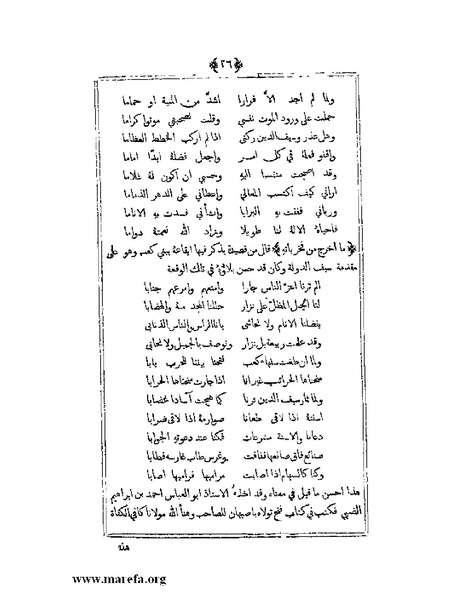 ﴿٢٦﴾
ولما لم اجد الا فرارا اشدَّ من المنية او حماما
حملت على ورود الموت نفسي وقلت لصحبتي موتوا كراما
وهل عذر وسيف الدين ركني اذا لم اركب الخطط العظاما
واقفو فعله في كل امر واجعل فضله ابدًا اماما
وقد اصبحت منتسبا اليه وحسبي ان اكون له غلاما
اراني كيف اكتسب المعالي واعطاني على الدهر الذماما
ورباني ففقت به البرايا وانشأني فسدت به الاناما
فاحياهُ الاله لنا طويلا وزاد الله نعمته دواما
﴿ما اخرج من فخرياته﴾ قال من قصيدة يذكر فيها ايقاعه ببني كعب وهو على
مقدمة سيف الدولة وكان قد حسن بلاؤه في تلك الوقعة
الم ترنا اعز الناس جارا وامنعهم وامرعهم جنابا
لنا الجبل المطل على نزار حللنا المجد منه والهضابا
يفضلنا الانام ولا نحاشي ونوصف بالجميل ولا نحابى
وقد علمت ربيعة بل نزار بانا الراس والناس الذنابى
ولما ان طغت سفهاء كعب فتحنا بيننا للحرب بابا
منحناها الحرائب غير انا اذا جارت منحناها الحرابا
ولما ثار سيف الدين ثرنا كما هيجت آسادا غضابا
اسنته اذا لاقى طعانا صوارمه اذا لاقى ضرابا
دعانا والاسنة مشرعات فكنا عند دعوته الجوابا
صنائع فاق صانعها ففاقت وغرس طاب غارسه فطابا
وكنا كالسهام اذا اصابت مراميها فراميها اصابا
هذا احسن ما قيل في معناه وقد اخذهُ الاستاذ ابو العباس احمد بن ابراهيم
الضبي فكتب في كتاب فتح تولاه باصبهان للصاحب وهنأ الله مولانا كافي الكفاة
هذه
www.marefa.org